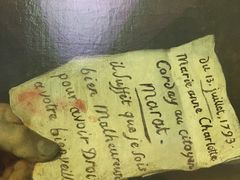 du 13. juillet, 1793.
Marie anne Charlotte
Corday au citoyen
Marat.
il suffit que je sois
bien Malheureuse
pour avoir Droit
a votre